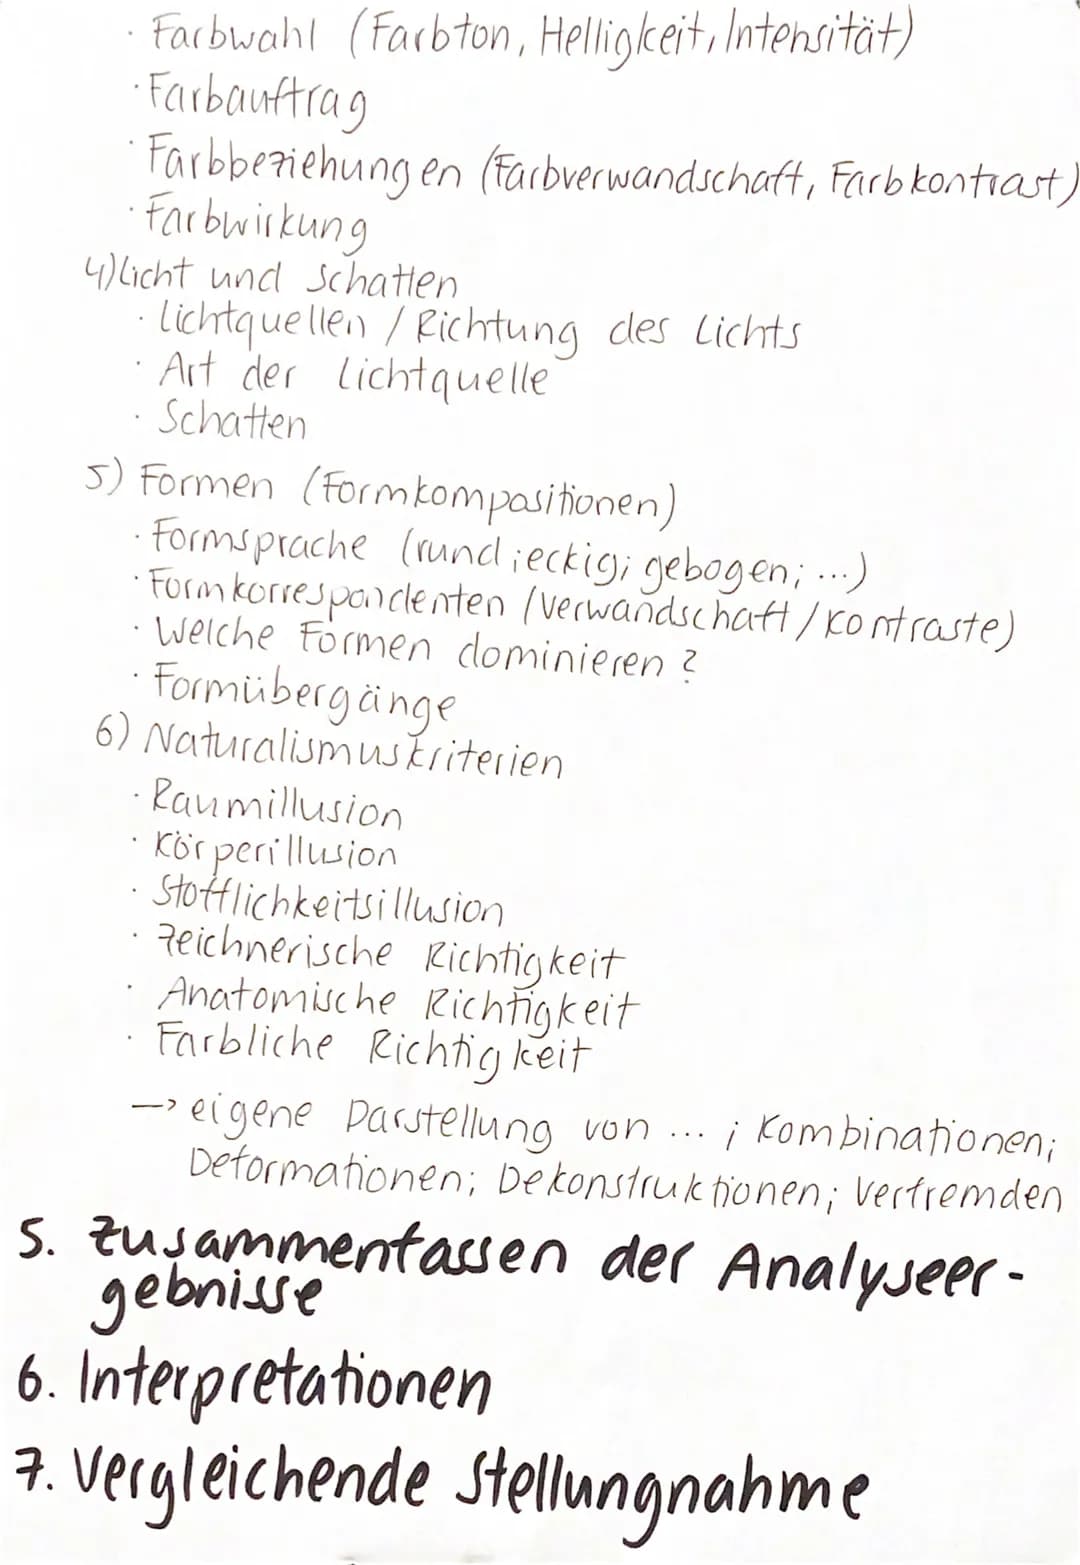 · Farbwahl (Farbton, Helligkeit, Intensität)
· Farbauftrag
· Farbbeziehungen (Farbverwandschaft, Farbkontrast)
· Farbwirkung
4) Licht und Schatten
· Lichtquellen / Richtung des Lichts
· Art der Lichtquelle
· Schatten
5) Formen (Formkompositionen)
· Formsprache (rund; eckig; gebogen; ...)
· Formkorrespondenten (Verwandschaft / Kontraste)
· Welche Formen dominieren ?
· Formübergänge
6) Naturalismuskriterien
· Raumillusion
· Körperillusion
· Stofflichkeitsillusion
· Zeichnerische Richtigkeit
· Anatomische Richtigkeit
· Farbliche Richtigkeit
→ eigene Darstellung von ... ; Kombinationen;
Deformationen; Dekonstruktionen; Verfremden
5. Zusammenfassen der Analyseer-
gebnisse
6. Interpretationen
7. Vergleichende Stellungnahme